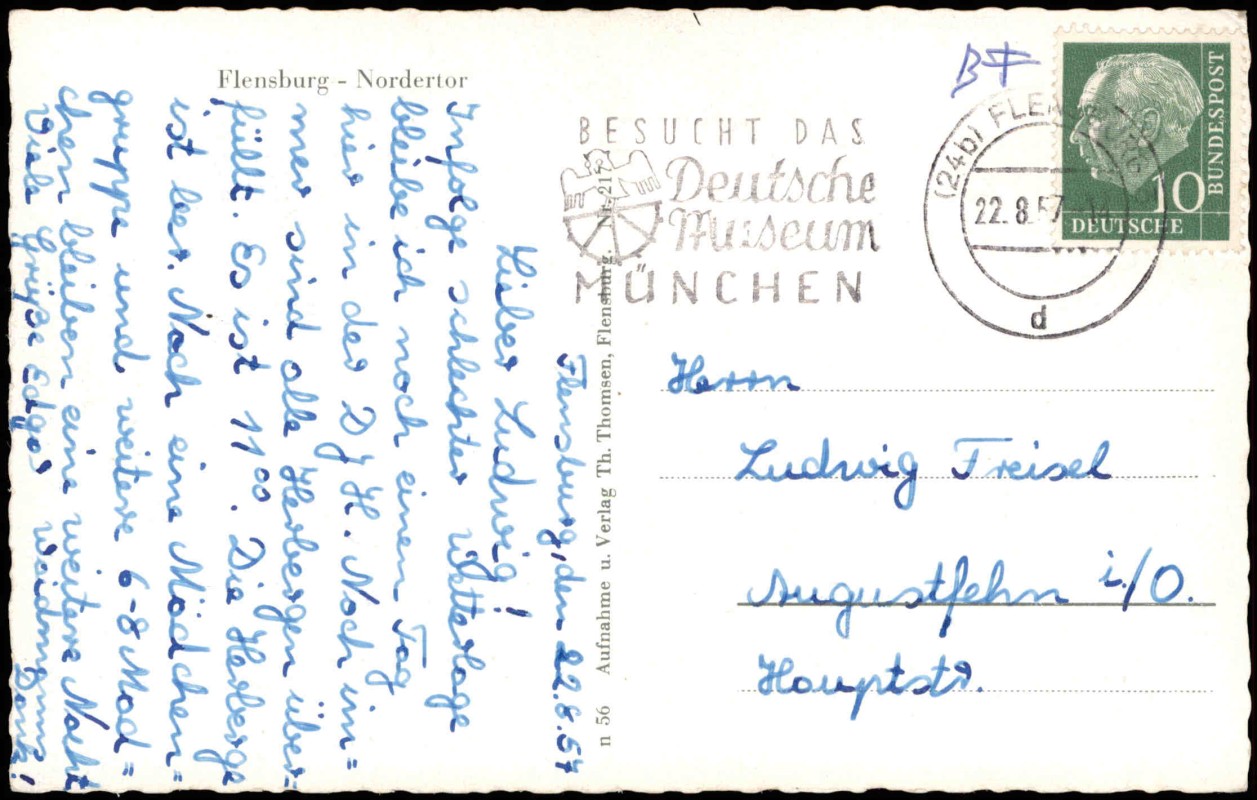 Flensburg - Nordertor
Flensburg, den 22.8.57
Lieber Ludwig!
Infolge schlechter Wetterlage
bleibe ich noch einen Tag
hier in der DJH. Noch im=
mer sind alle Herbergen über=
füllt. Es ist 11⁰⁰. Die Herberge
ist leer. Noch eine Mädchen=
gruppe und weitere 6-8 Mäd=
chen bleiben eine weitere Nacht
Viele Grüße Edgar
Weidmanns
Dank!
n 56 Aufnahme u. Verlag Th. Thomsen, Flensburg,
BESUCHT DAS
Deutsche
Museum
MÜNCHEN
(24b) FLENSBURG
22.8.57
d
10
DEUTSCHE
BUNDESPOST
Herrn
Ludwig Freisel
Augustfehn i./O.
Hauptstr.